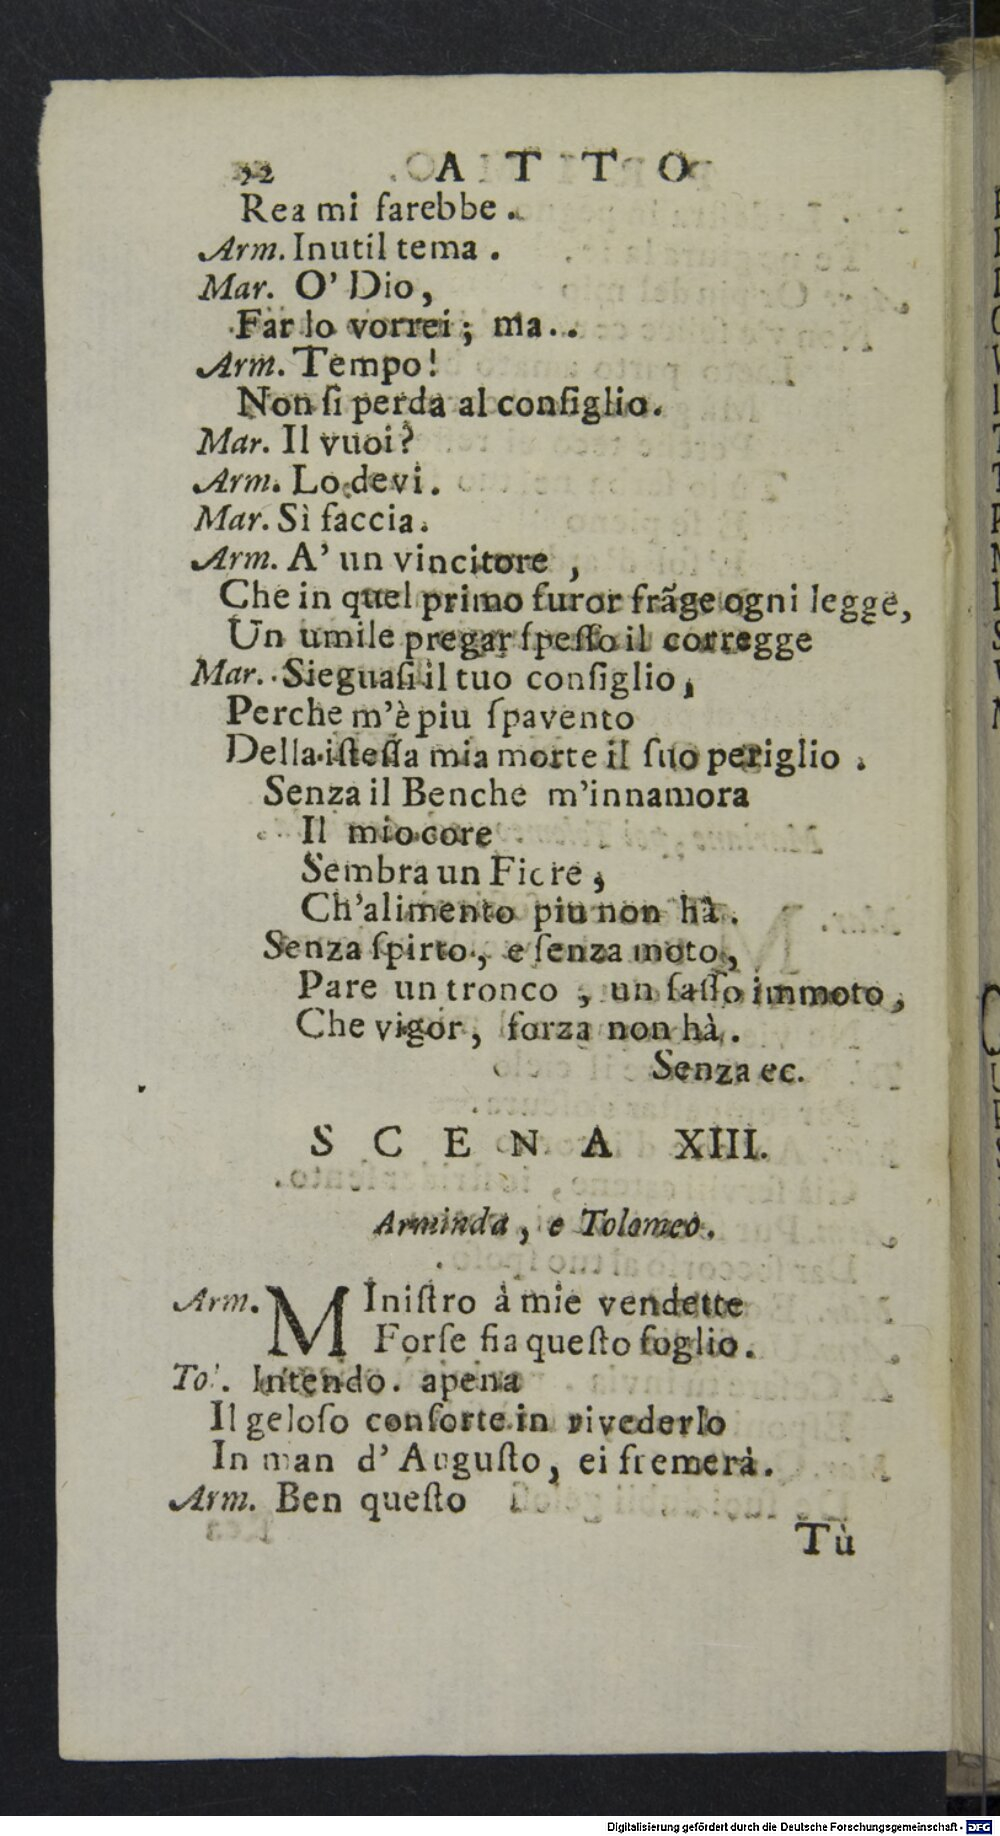 52 ATTO
Rea mi farebbe.
Arm. Inutil tema.
Mar. O' Dio,
Far lo vorrei; ma..
Arm. Tempo!
Non ſi perda al conſiglio.
Mar. Il vuoi?
Arm. Lo devi.
Mar. Sì faccia.
Arm. A' un vincitore,
Che in quel primo furor frãge ogni legge,
Un umile pregar ſpeſſo il corregge
Mar. Sieguaſi il tuo conſiglio,
Perche m'è piu ſpavento
Della iſteſſa mia morte il ſuo periglio.
Senza il Benche m'innamora
Il mio core
Sembra un Fiore,
Ch'alimento piu non hà.
Senza ſpirto, e ſenza moto,
Pare un tronco, un ſaſſo immoto,
Che vigor, forza non hà.
Senza ec.
SCENA XIII.
Arminda, e Tolomeo.
Arm. MIniſtro à mie vendette
Forſe fia queſto foglio.
Tol. Intendo. apena
Il geloſo conſorte in rivederlo
In man d' Auguſto, ei fremerà.
Arm. Ben queſto
Tù
Digitalisierung gefördert durch die Deutsche Forschungsgemeinschaft - DFG